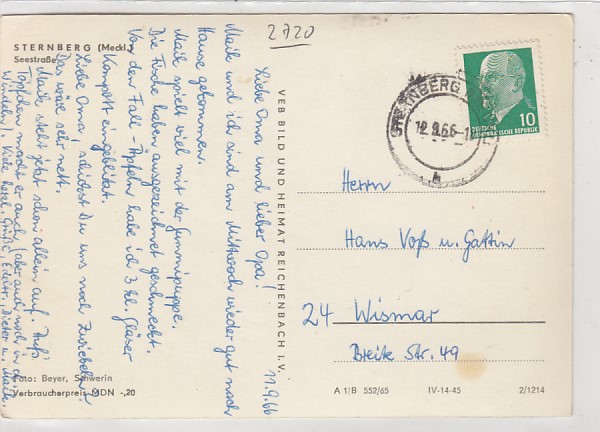 2720
STERNBERG (Meckl.)
Seestraße
11.9.66
Liebe Oma und lieber Opa!
Maik und ich sind am Mittwoch wieder gut nach
Hause gekommen.
Maik spielt viel mit der Gummipuppe.
Die Fische haben ausgezeichnet geschmeckt.
Von den Fall-Äpfeln habe ich 3 kl. Gläser
Kompott eingeblitzt.
Liebe Oma, schickst Du uns noch Zwiebeln?
Das wär sehr nett.
Maik steht jetzt schon allein auf. Aufs
Töpfchen macht er auch (aber auch noch in die
Windeln). Viele herzl. Grüße, Dieter u. Maik.
Foto: Beyer, Schwerin
Verbraucherpreis MDN -,20
VEB BILD UND HEIMAT REICHENBACH I. V.
10
DEUTSCHE
DEMOKRATISCHE REPUBLIK
STERNBERG
12.9.66-1
h
Herrn
Hans Voß u. Gattin
24 Wismar
Breite Str. 49
A 1/B 552/65 IV-14-45 2/1214